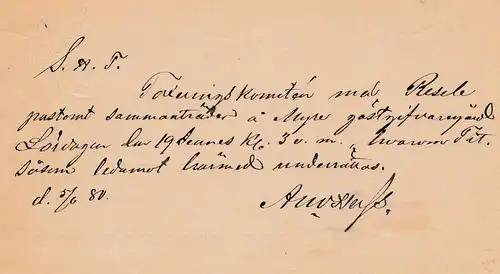 S. H. T.
Taxeringskomitén med Resele
pastorat sammanträder å Myre gästgifvaregård
Lördagen den 19 dennes Kl. 3 e. m., hwarom Tit.
såsom ledamot härmed underrättas.
d. 5/6 80.